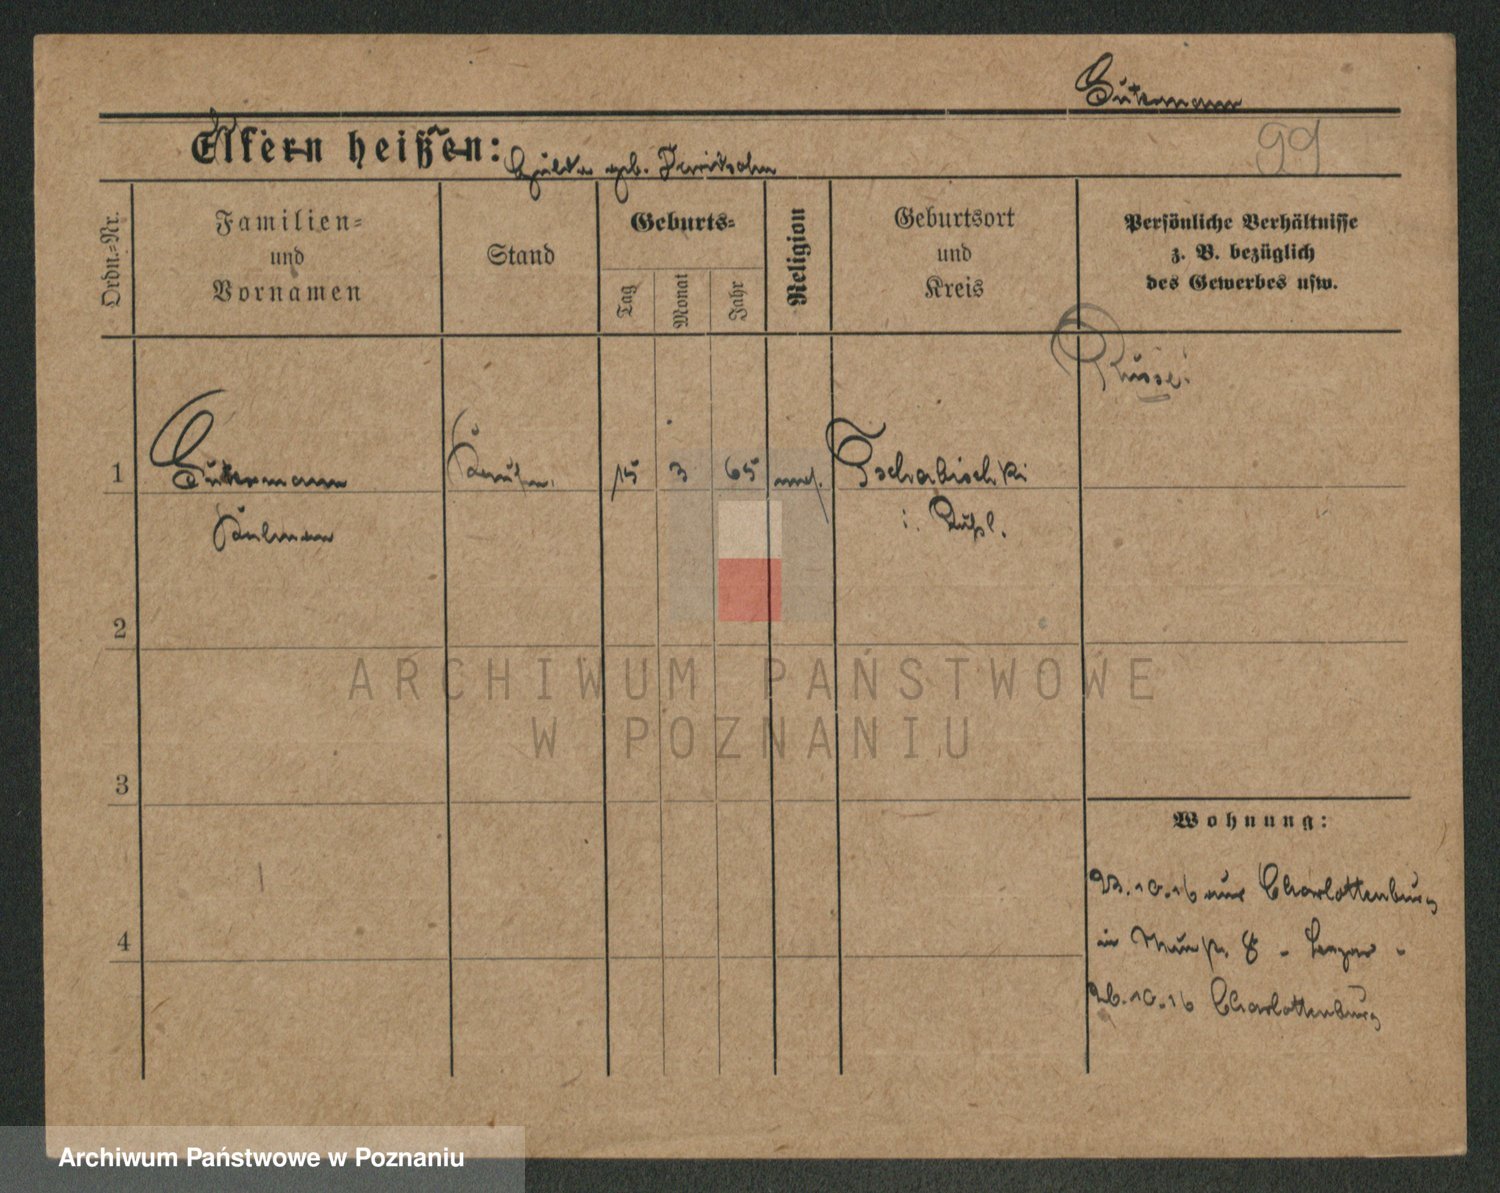 Gutermann
Eltern heißen:
geb.
99
Ordn.-Nr.
Familien-
und
Vornamen
Stand
Geburts-
Tag
Monat
Jahr
Religion
Geburtsort
und
Kreis
Persönliche Verhältnisse
z. B. bezüglich
des Gewerbes usw.
Russe!
1
Gutermann
Kaufm.
15
3
65
mos.
Tschabischki
Kalman
i. Rußl.
2
3
4
Wohnung:
23.10.16 aus Charlottenburg
in 8
26.10.16 Charlottenburg
ARCHIWUM PAŃSTWOWE
W POZNANIU
Archiwum Państwowe w Poznaniu